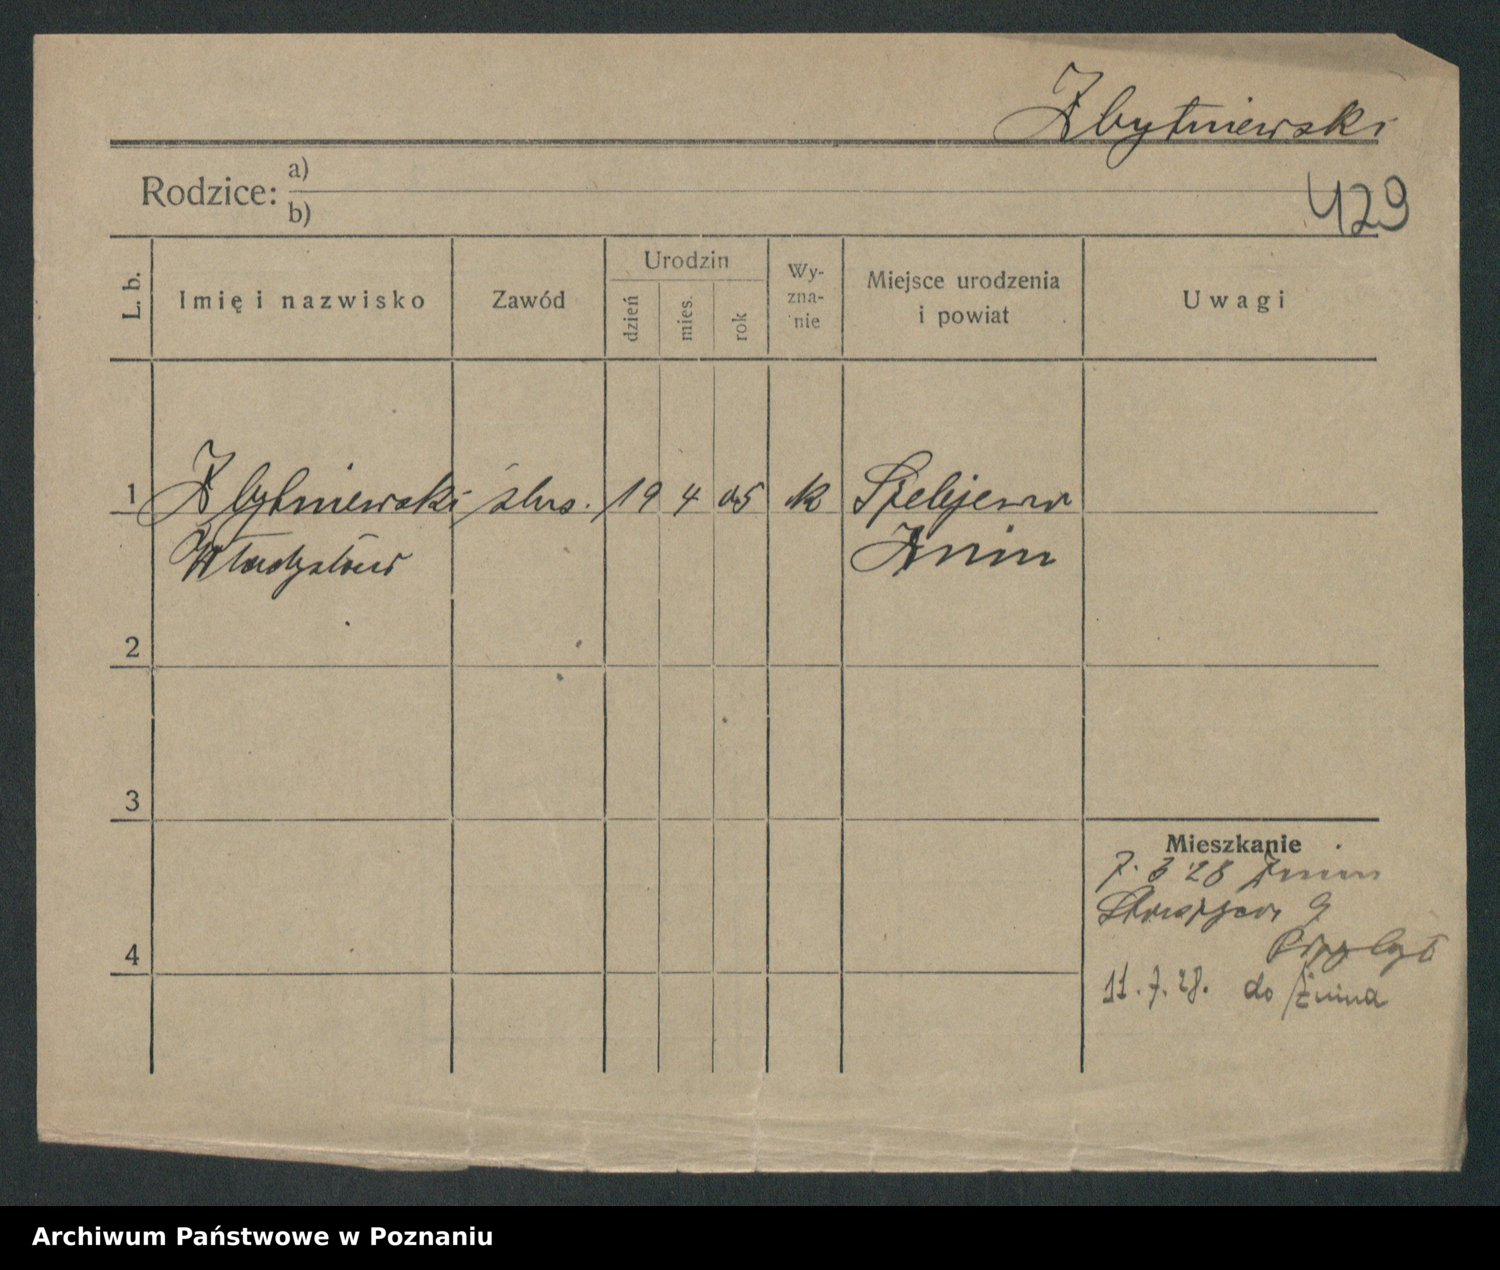 Zbytniewski
Rodzice: a)
b)
429
L. b.
Imię i nazwisko
Zawód
Urodzin
dzień
mies.
rok
Wy-
zna-
nie
Miejsce urodzenia
i powiat
Uwagi
1 Zbytniewski ślus. 19 4 05 k
Władysław
Żnin
2
3
4
Mieszkanie
7. 3 28 Żnin
9
11. 7. 28. do Żnina
Archiwum Państwowe w Poznaniu